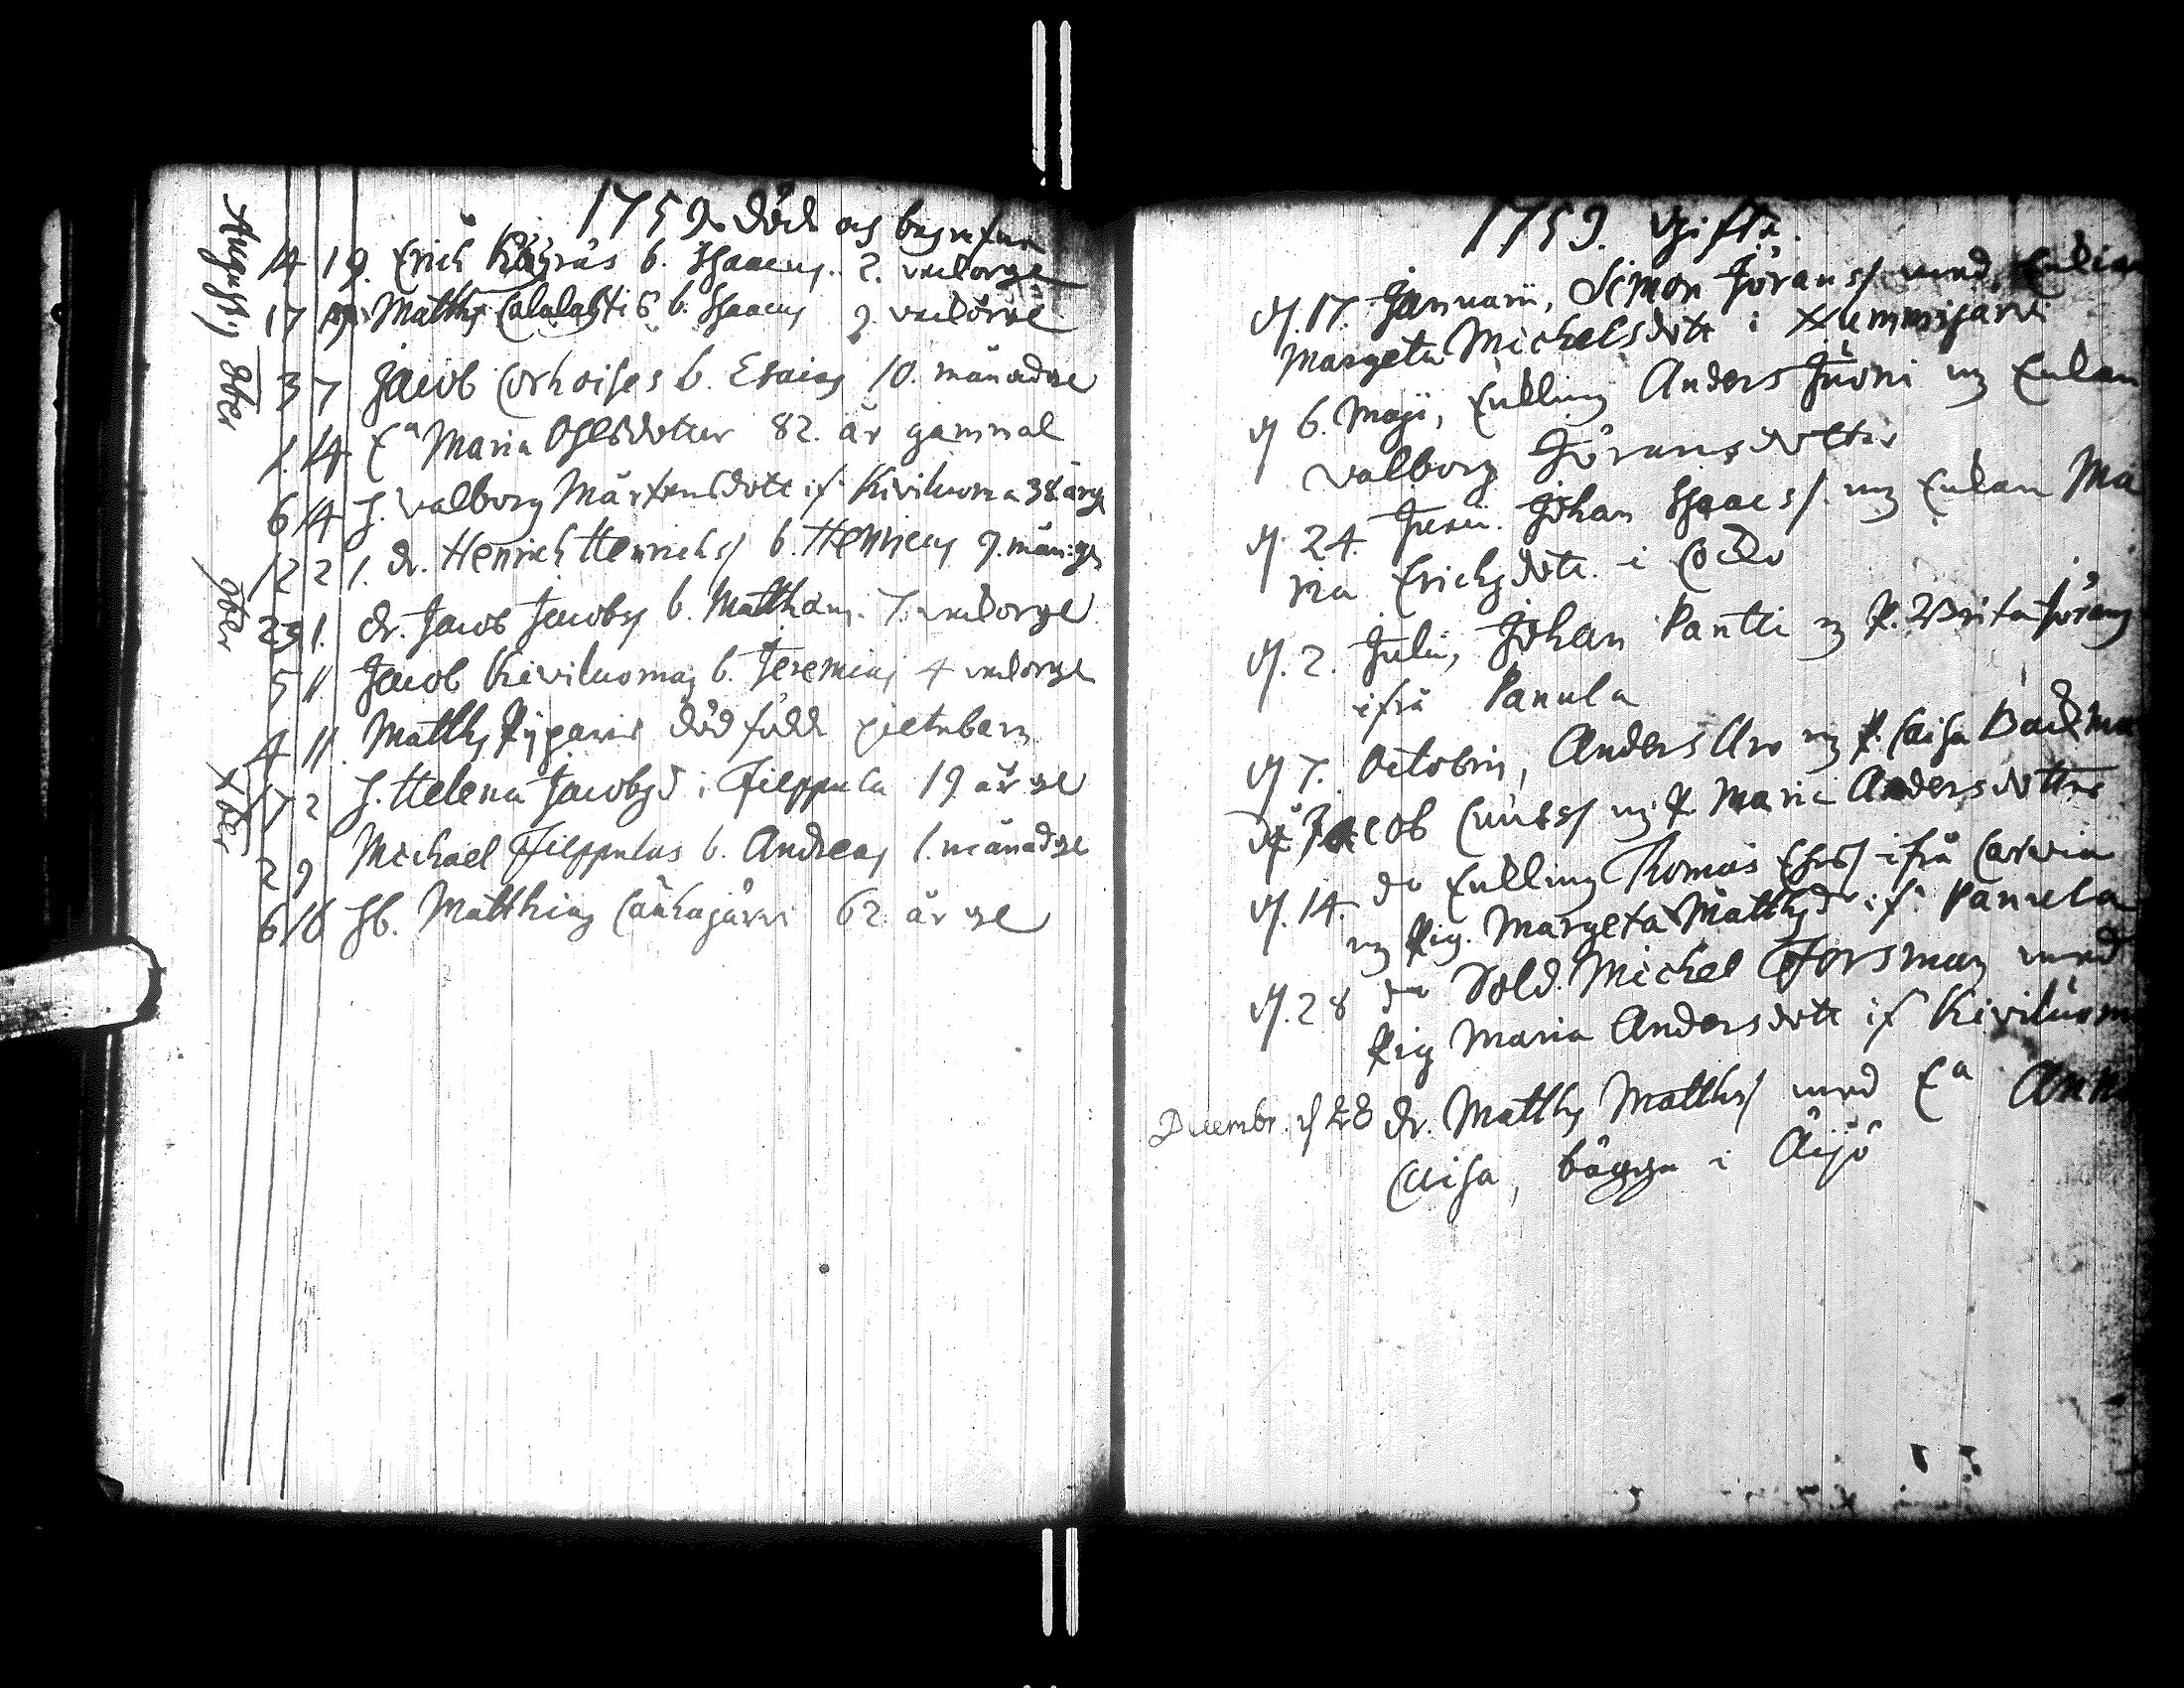 1759. Död och begrafne
Augusti 14 19. Erich Köyräs b. Isaacus. 2. veckorge
17 19. Matths Calalahtis b. Isaacus 9. veckorge
8ber 3 7 Jacob Corhoises b. Esaias 10. månadge
1. 14 Ea Maria Ohlsdotter 82. år gammal
6 14 h. Valborg Mårtensdott if Kiviluoma 38 årge
12 21. dr. Henrich Henrichs/ b. Henricus 9. mån:ge
9ber 29 1. dr. Jacob Jacobs/ b. Matthæus. 7. veckorge
5 11 Jacob Kiviluomas b. Jeremias 4 veckorge
4 11. Matths död född
Xber 17 2 h. Helena Jacobsd i Fileppula 19 år ge
2 9 Michael Fileppulas b. Andreas 1. månadge
6 16 hb. Matthias Cauhajärvi 62 år ge
1759. Gifte.
d. 17. Januarii, Simon Jörans/ med Enkian
Margeta Michelsdott i Nummijärvi
d 6. Maji, Enkling Anders Juoni m Enkan
Valborg Jöransdotter
d. 24. Junii. Johan Isaacs/. m Enkan Ma
ria Erichsdott. i
d. 2. Julii, Johan Pantti m P. Brita Jörans
ifrå Panula
d 7. Octobris, Anders Uro m P. Caisa Backma
Jacob m P. Maria Andersdotter
d. 14. do Enkling Thomas Ehrs/ ifrå Carvia
m Pig. Margeta Matthsdr if Panula
d. 28 do Sold. Michel Forsman med
Pig Maria Andersdott if Kiviluom
Decembr. d 28 dr. Matths Matths/ med Ea Anna
Caisa, bägge i Äijö